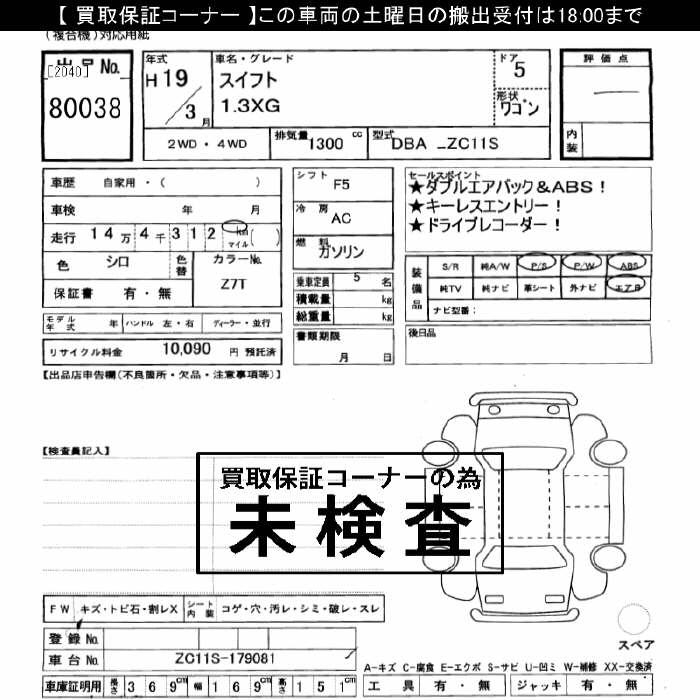 【 買取保証コーナー 】この車両の土曜日の搬出受付は18:00まで
(複合機)対応用紙
出品No.
[2040]
80038
年式
H 19
3 月
車名・グレード
スイフト
1.3XG
ドア
5
形状
ワゴン
評価点
内装
2WD・4WD
排気量 1300 cc
型式 DBA -ZC11S
車歴 自家用・( )
車検 年 月
走行 14万4千312 km マイル ( )
色 シロ
色替
カラーNo.
Z7T
保証書 有・無
シフト
F5
冷房
AC
燃料
ガソリン
乗車定員 5 名
積載量 kg
総重量 kg
セールスポイント
★ダブルエアバック&ABS!
★キーレスエントリー!
★ドライブレコーダー!
装備品
S/R 純A/W P/S P/W ABS
純TV 純ナビ 革シート 外ナビ エアB
ナビ型番:
モデル年式 年 ハンドル 左・右 ディーラー・並行
リサイクル料金 10,090 円 預託済
書類期限
月 日
後日品
【出品店申告欄(不良箇所・欠品・注意事項等)】
【検査員記入】
買取保証コーナーの為
未検査
FW キズ・トビ石・割レX シート内装 コゲ・穴・汚レ・シミ・破レ・スレ
登録No.
車台No. ZC11S-179081
スペア
A-キズ C-腐食 E-エクボ S-サビ U-凹ミ W-補修 XX-交換済
車庫証明用 長さ 369cm 幅 169cm 高さ 151cm
工具 有・無 ジャッキ 有・無